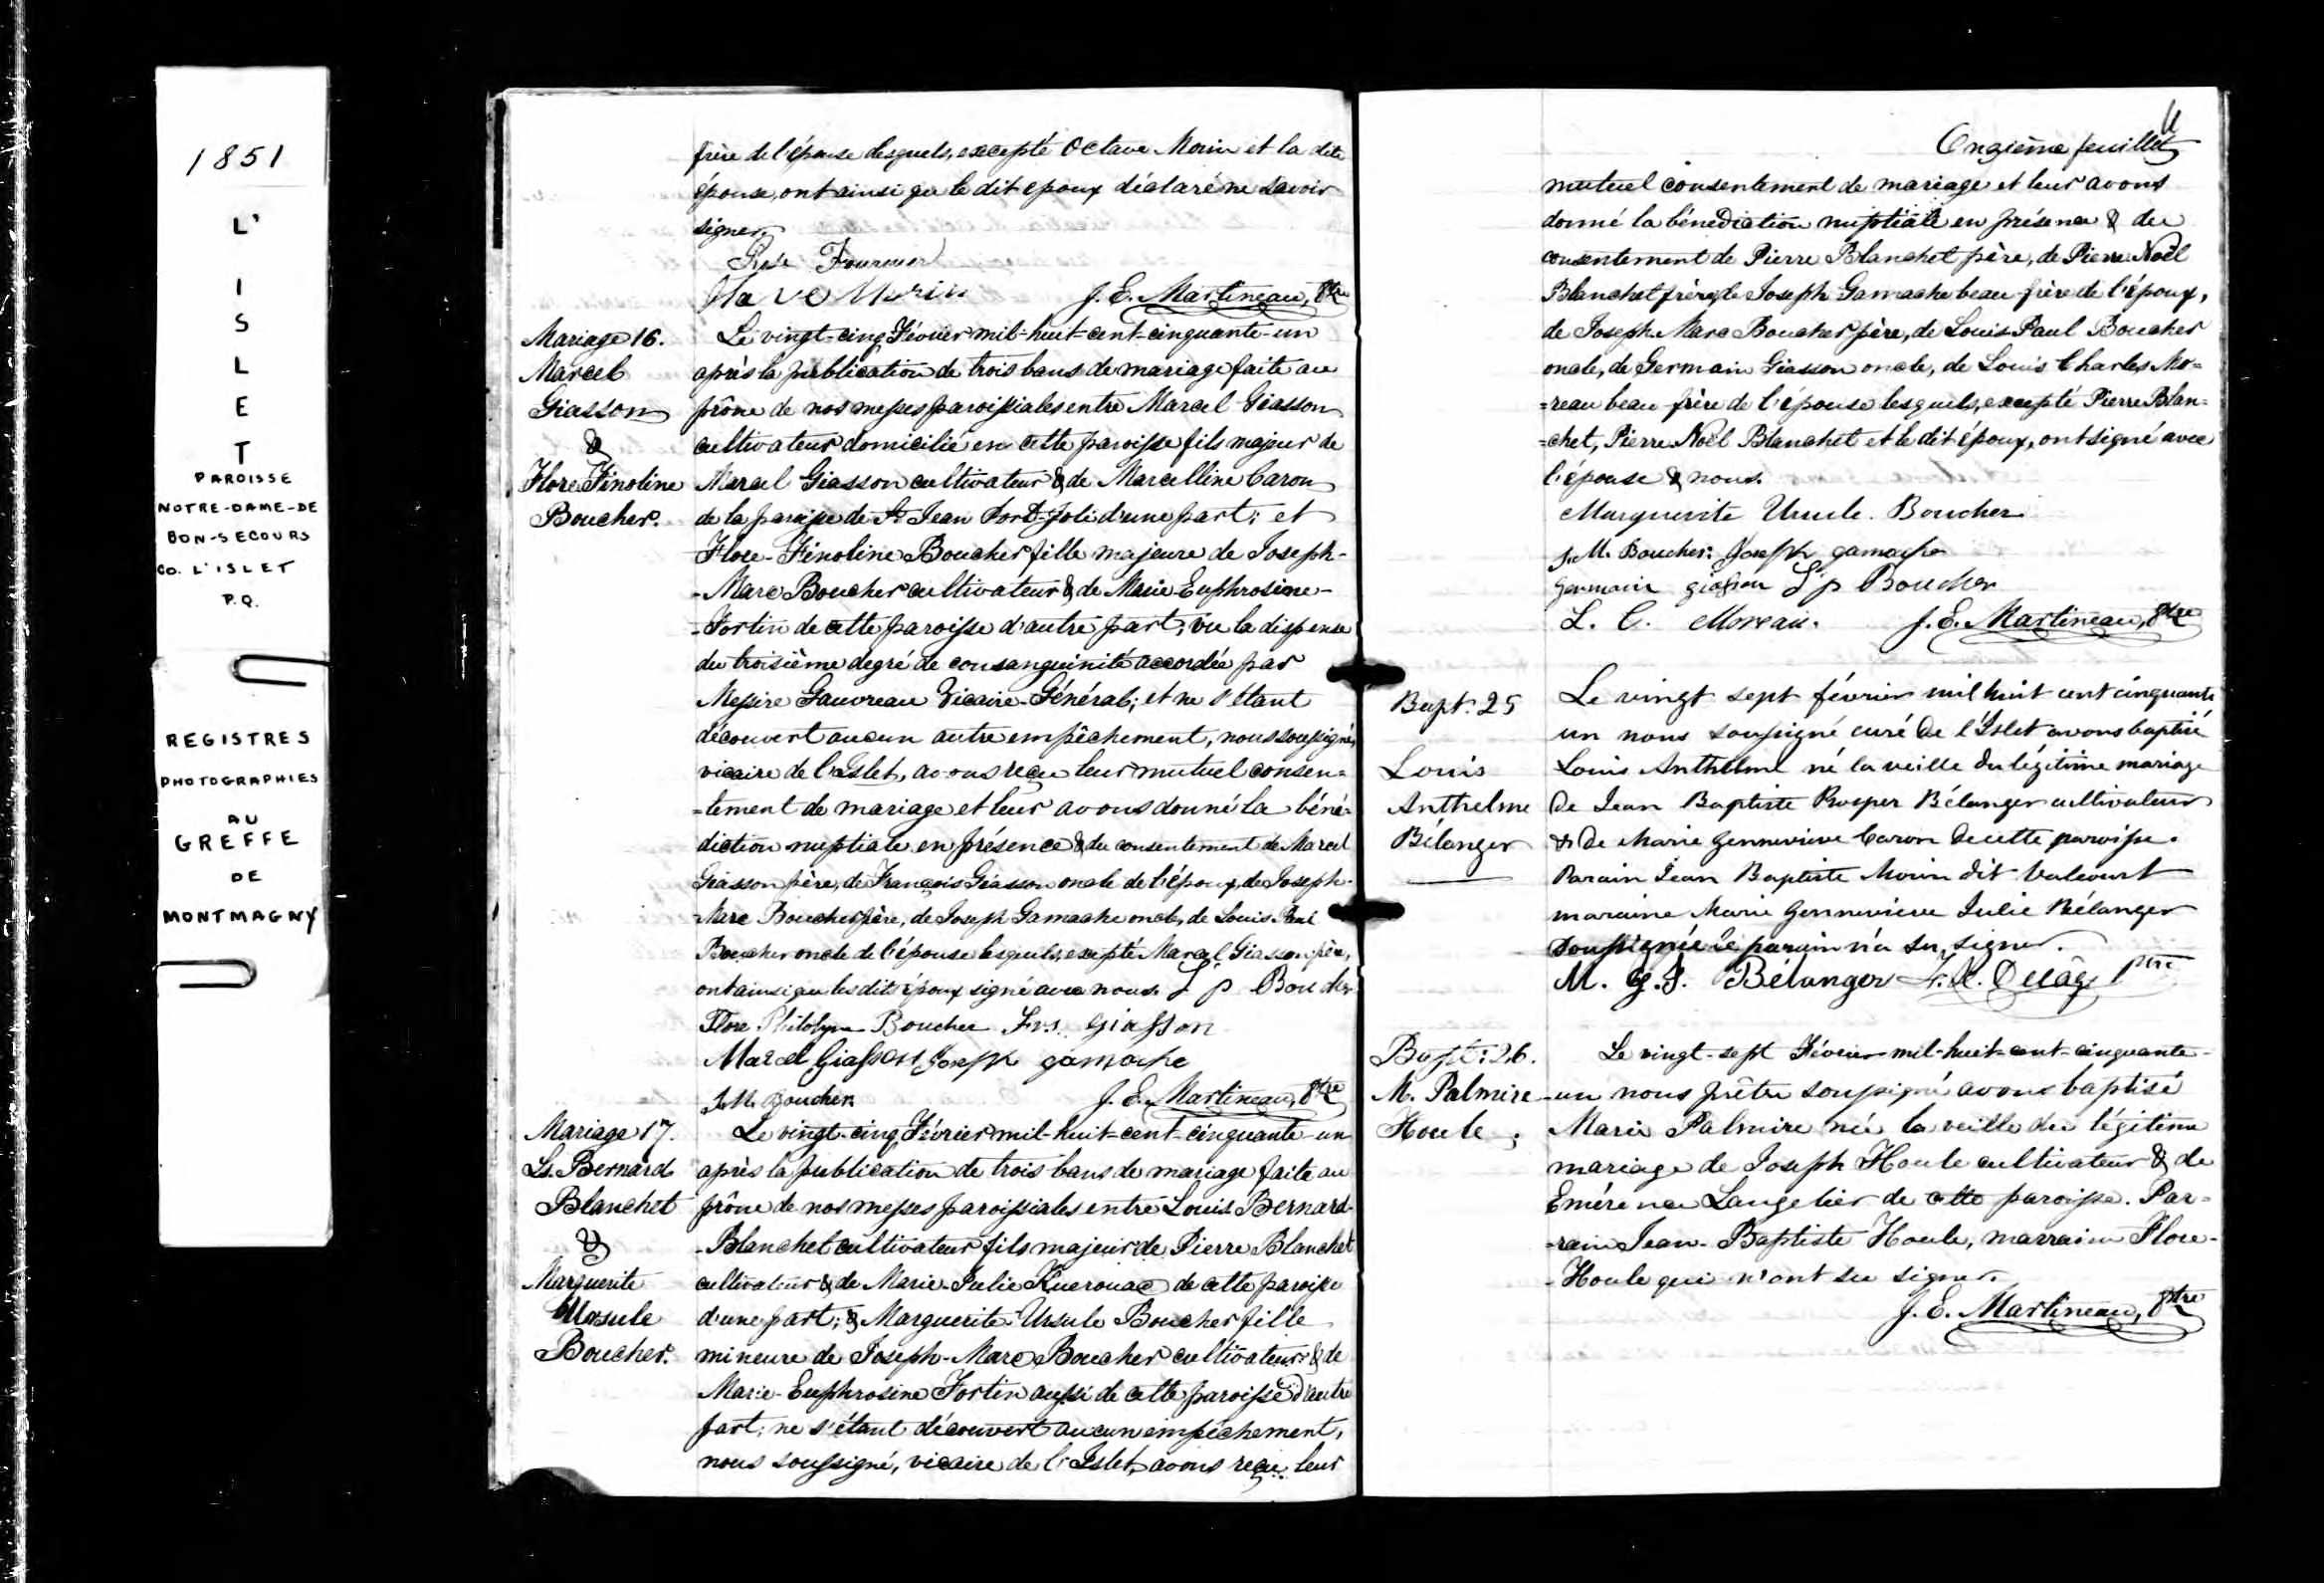 1851
L'
I
S
L
E
T
PAROISSE
NOTRE-DAME-DE
BON-SECOURS
CO. L'ISLET
P.Q.
REGISTRES
PHOTOGRAPHIES
AU
GREFFE
DE
MONTMAGNY
frère de l'épouse lesquels, excepté Octave Morin et la dite
épouse, ont ainsi que le dit epoux déclaré ne savoir
signer.
Rose Fournier
Morin J. E. Martineau, Ptre
Mariage 16.
Marcel
Giasson
&
Flore Finoline
Boucher.
Le vingt-cinq Février mil-huit-cent-cinquante-un
après la publication de trois bans de mariage faite au
prône de nos messes paroissiales entre Marcel Giasson
cultivateur domicilié en cette paroisse fils majeur de
Marcel Giasson cultivateur & de Marcelline Caron
de la paroisse de St Jean Port-Joli d'une part; et
Flore-Finoline Boucher fille majeure de Joseph-
-Marc Boucher cultivateur & de Marie-Euphrosine-
-Fortin de cette paroisse d'autre part; vu la dispense
du troisième degré de consanguinité accordée par
Messire Gauvreau Vicaire-Général; et ne s'étant
découvert aucun autre empêchement, nous soussigné,
vicaire de l'Islet, avons reçu leur mutuel consen=
=tement de mariage et leur avons donné la béné=
diction nuptiale en présence & du consentement de Marcel
Giasson père, de François Giasson oncle de l'époux, de Joseph-
-Marc Boucher père, de Joseph Gamache oncle, de Louis Paul
Boucher oncle de l'épouse lesquels, excepté Marcel Giasson père,
ont ainsi que les dits époux signé avec nous. L p Boucher
Flore Philolyne Boucher Frs. Giasson
Marcel Giasson Joseph gamache
J. M. Boucher J. E. Martineau, Ptre
Mariage 17.
Ls. Bernard
Blanchet
&
Marguerite
Ursule
Boucher.
Le vingt-cinq Février mil-huit-cent-cinquante-un
après la publication de trois bans de mariage faite au
prône de nos messes paroissiales entre Louis Bernard-
-Blanchet cultivateur fils majeur de Pierre Blanchet
cultivateur & de Marie-Julie Kuerouac de cette paroisse
d'une part; & Marguerite-Ursule Boucher fille
mineure de Joseph-Marc Boucher cultivateur & de
Marie-Euphrosine Fortin aussi de cette paroisse d'autre
part; ne s'étant découvert aucun empêchement,
nous soussigné, vicaire de l'Islet, avons reçu leur
11
Onzième feuillet
mutuel consentement de mariage et leur avons
donné la bénédiction nuptiale en présence & du
consentement de Pierre Blanchet père, de Pierre Noël
Blanchet frère, de Joseph Gamache beau-frère de l'époux,
de Joseph Marc Boucher père, de Louis Paul Boucher
oncle, de Germain Giasson oncle, de Louis Charles Mo=
=reau beau-frère de l'épouse lesquels, excepté Pierre Blan=
=chet, Pierre Noël Blanchet et le dit époux, ont signé avec
l'épouse & nous.
Marguerite Ursule Boucher
J. M. Boucher Joseph gamache
germain giasson L p Boucher
L. C. Moreau. J. E. Martineau, Ptre
Bapt. 25
Louis
Anthelme
Bélanger
Le vingt sept février mil huit cent cinquante
un nous soussigné curé de l'Islet avons baptisé
Louis Anthelme né la veille du légitime mariage
de Jean Baptiste Prosper Bélanger cultivateur
& de Marie Gennevieve Caron de cette paroisse.
Parain Jean Baptiste Morin dit Valcourt
maraine Marie Gennevieve Julie Bélanger
soussignée le parain n'a su signer.
M. G. J. Bélanger F. X. Delâge Ptre
Bapt: 26.
M. Palmire
Houle.
Le vingt-sept Février mil-huit-cent-cinquante-
-un nous prêtre soussigné avons baptisé
Marie Palmire née la veille du légitime
mariage de Joseph Houle cultivateur & de
Emérence Langelier de cette paroisse. Par=
=rain Jean-Baptiste Houle, marraine Flore-
-Houle qui n'ont su signer.
J. E. Martineau, Ptre